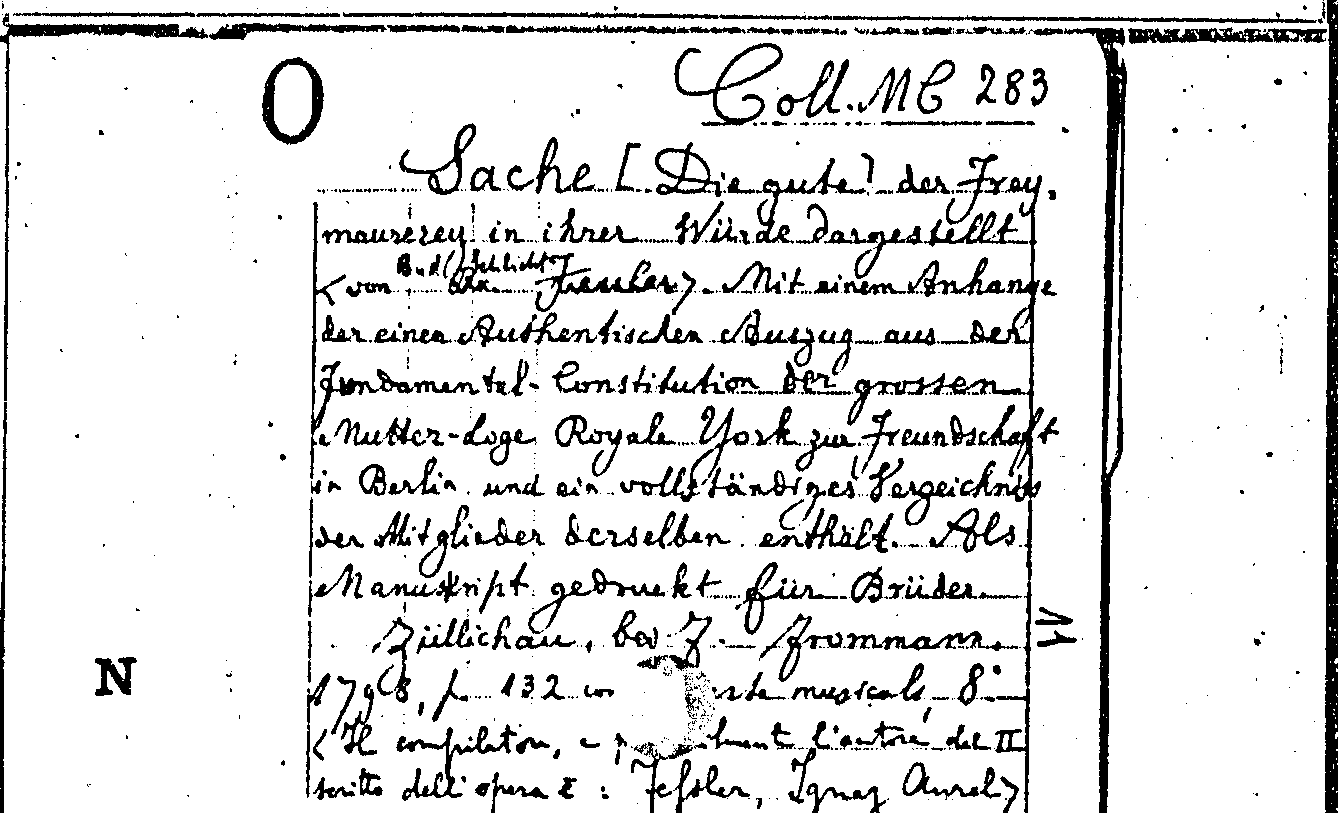 O
Coll. MC 283
Sache [Die gute] der Frey,
maurerey in ihrer Würde dargestellt
Schlicht
<von Fessler>. Mit einem Anhange
der einen Authentischen Auszug aus der
Fundamental-Constitution der grossen
Mutter-Loge Royale York zur Freundschaft
in Berlin und ein vollständiges Verzeichniss
der Mitglieder derselben enthält. Als
Manuskript gedruckt für Brüder.
Züllichau, bei F. Frommann.
N
1798, p. 132 con musicals, 8°
<Il compilatore, e l'autore del II
scritto dell'opera è: Fessler, Ignaz Aurel>